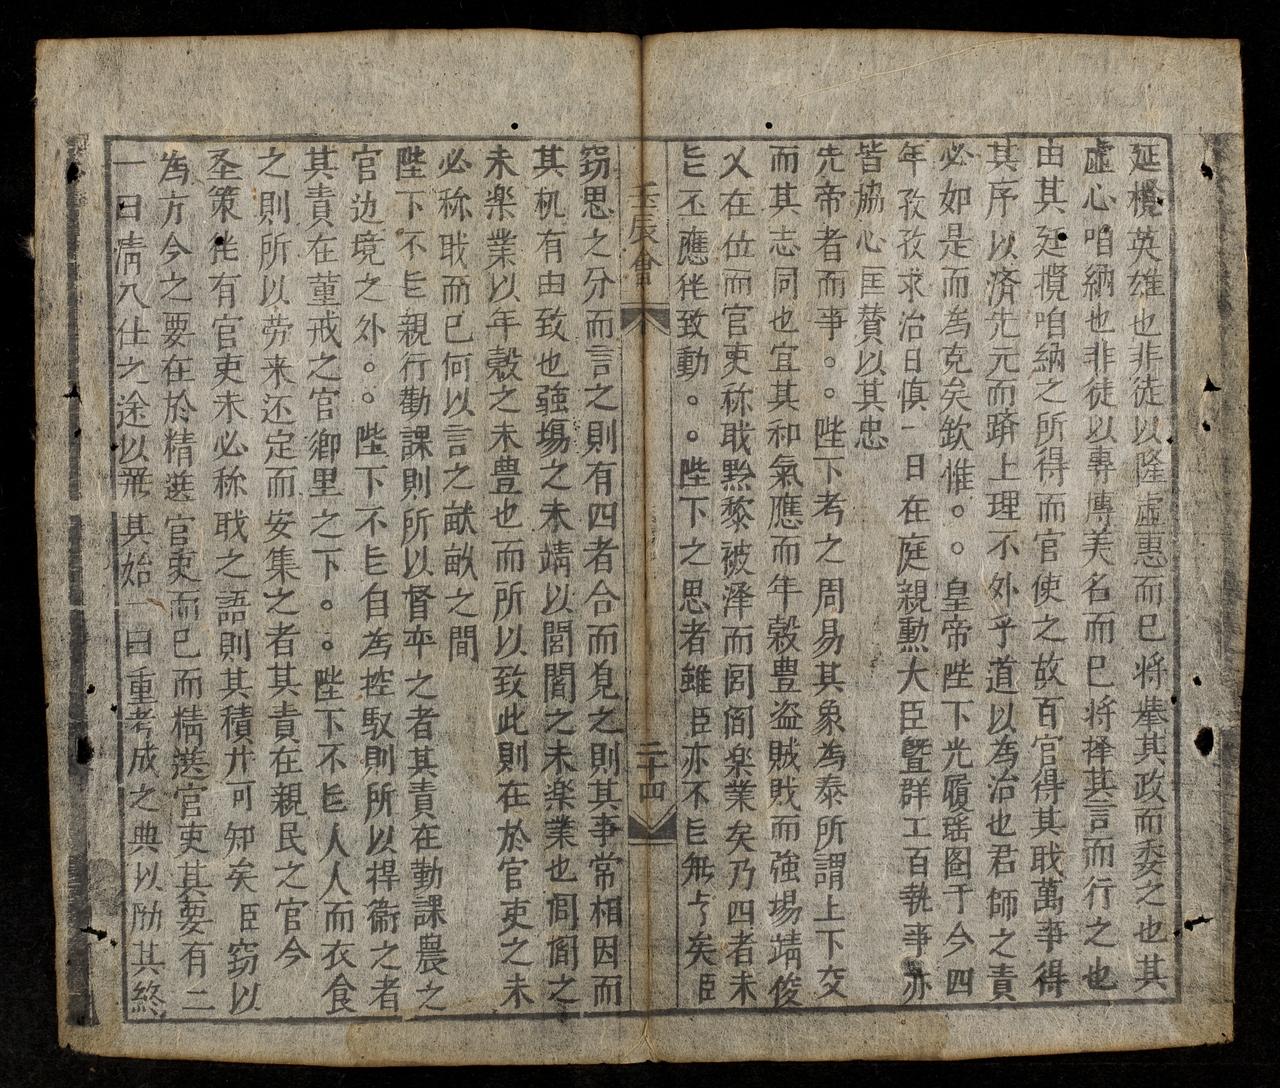 延攬英雄也非徒以隆虛惠而已将挙其政而委之也其
虛心咱納也非徒以專傳美名而已将择其言而行之也
由其延攬咱納之所得而官使之故百官得其戢萬事得
其序以済先元而躋上理不外乎道以為治也君師之責
必如是而為克矣欽惟。。皇帝陛下光履瑶圖于今四
年孜孜求治日慎一日在庭親勲大臣曁群工百執事亦
皆協心匡賛以其忠
先帝者而亊。。陛下考之周易其象為泰所謂上下交
而其志同也宜其和氣應而年穀豊盗賊戝而強埸靖俊
乂在位而官吏称戢黔黎被泽而閭阎楽業矣乃四者未
𠯁丕應徃致動。。陛下之思者雖臣亦不𠯁無𠯁矣臣
壬辰會
二十四
窃思之分而言之則有四者合而見之則其事常相因而
其机有由致也强埸之未靖以閭閻之未楽業也閭閻之
未楽業以年穀之未豊也而所以致此則在於官吏之未
必称戢而已何以言之献畝之間
陛下不𠯁親行勸課則所以督率之者其責在勤課農之
官边境之外。。陛下不𠯁自為控馭則所以捍衛之者
其責在菫戒之官鄉里之下。。陛下不𠯁人人而衣食
之則所以劳来还定而安集之者其責在親民之官今
圣策徃有官吏未必称戢之語則其積廾可知矣臣窃以
為方今之要在於精选官吏而已而精选官吏其要有二
一曰清入仕之途以無其始一曰重考成之典以励其終